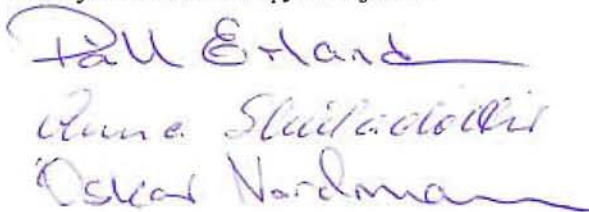 Páll Erland
Anna Skúladóttir
Oskar Nordmann